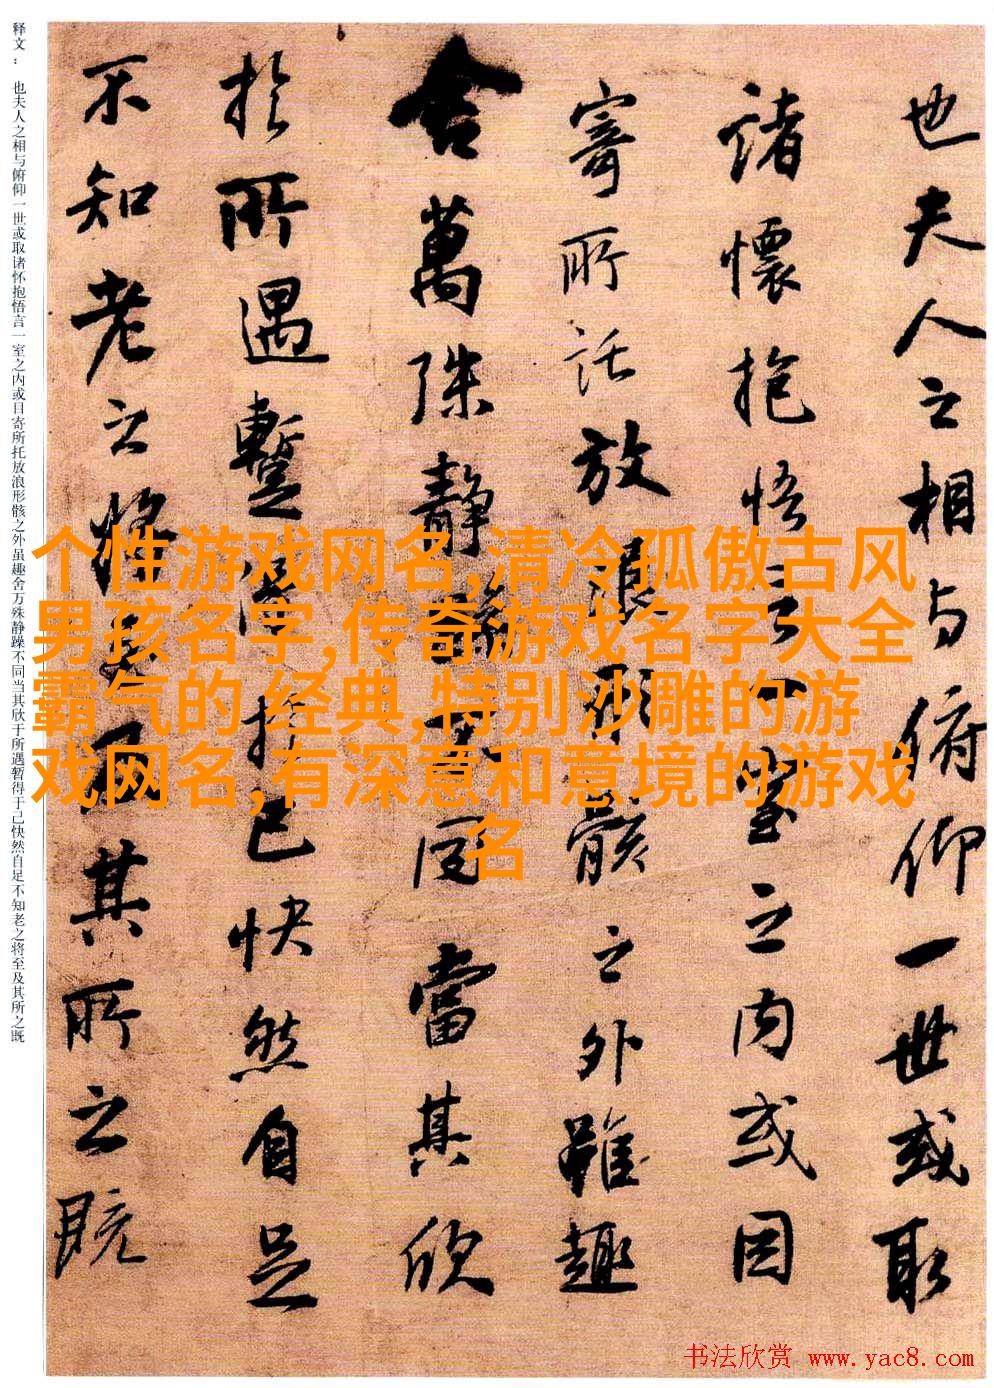 也夫人之相与俯仰一世或取
諸懷抱悟言一室之内或因
寄所託放浪形骸之外雖趣
舍萬殊靜躁不同當其欣
於所遇暫得於己快然自足
不知老之將至及其所之既
释文：也夫人之相与俯仰一世或取诸怀抱悟言一室之内或目寄所托放浪形骸之外虽趣舍万殊静躁不同当其欣于所遇暂得于己快然自足不知老之将至及其所之既
个性游戏网名,清冷孤傲古风
男孩名字,传奇游戏名字大全
霸气的 经典,特别沙雕的游
戏网名,有深意和意境的游戏
名
书法欣赏 www.yac8.com